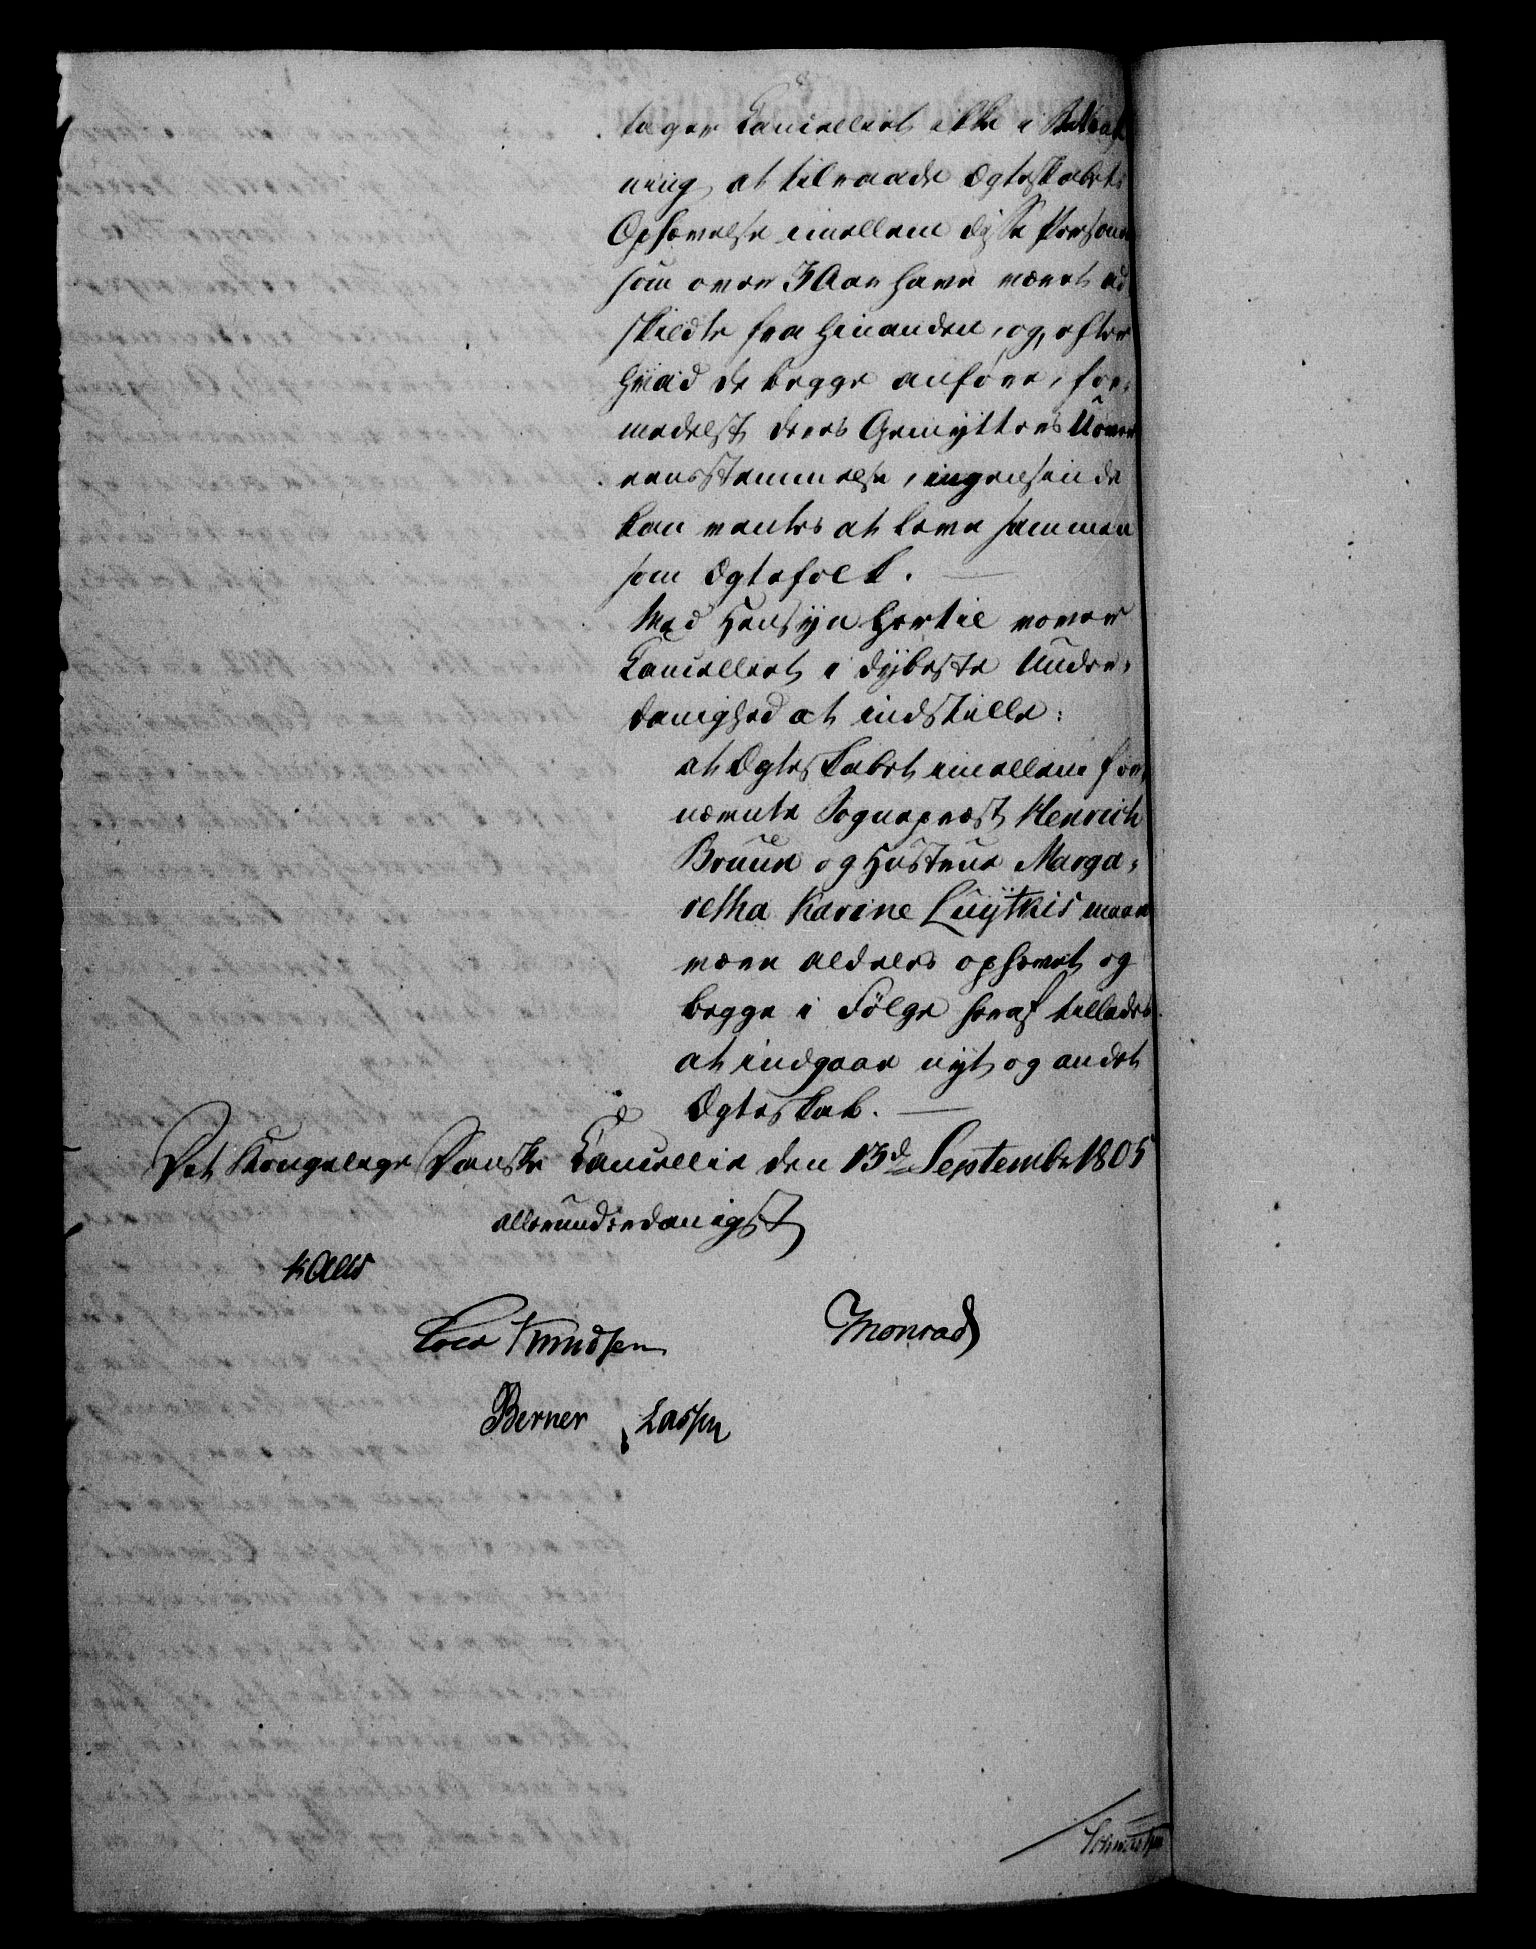 tager Cancelliet ikke i Betænk
ning, at tilraade Ægteskabets
Ophævelse imellem disse Personer
som over 3 Aar have været ad
skildte fra hinanden, og, efter
hvad de begge anføre, for-
medelst deres Gemytters Uover
eensstemmelse, ingensinde
kan ventes at leve sammen
som Ægtefolk.
Med Hensyn hertil vover
Cancelliet i dybeste Under-
danighed at indstille:
at Ægteskabet imellem for
nævnte Sognepræst Henrich
Bruun og Hustrue Marga-
retha Karine Luÿtkis maae
være aldeles ophævet og
begge i Følge heraf tillades
at indgaae nyt og andet
Ægteskab.
Det Kongelige Danske Cancellie den 13d September 1805
allerunderdanigst
Kaas
Cold Knudsen
Monrad
Berner Lassen